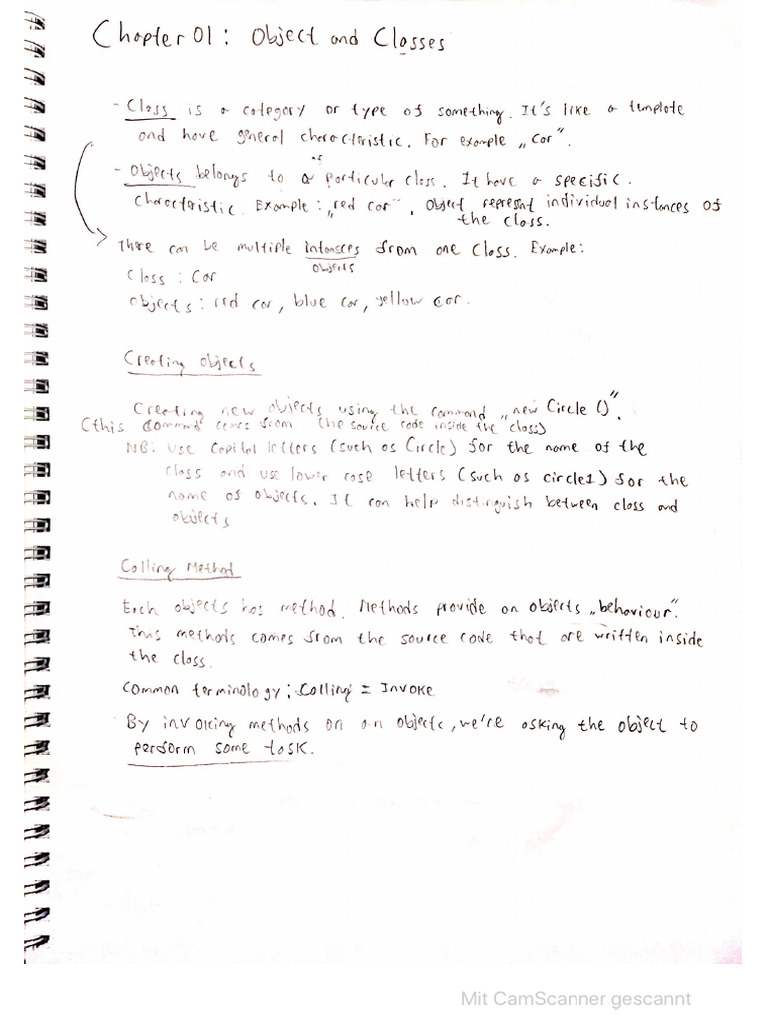 Chapter 01: Object and Classes
- Class is a category or type of something. It's like a template
and have general characteristic. For example „Car".
- Objects belongs to a particular class. It have a specific.
characteristic. Example: „red car". Object represent individual instances of
the class.
There can be multiple intansces from one Class. Example:
objects
Class : Car
objects : red car, blue car, yellow car.
Creating objects
Creating new objects using the command „new Circle ()".
(this command comes from the source code inside the class)
NB: Use Capital letters (such as Circle) for the name of the
class and use lower case letters (such as circle1) for the
name of objects. It can help distinguish between class and
objects
Calling Method
Each objects has method. Methods provide an objects „behaviour".
This methods comes from the source code that are written inside
the class.
Common terminology: Calling = Invoke
By invoking methods on an objects, we're asking the object to
perform some task.
Mit CamScanner gescannt